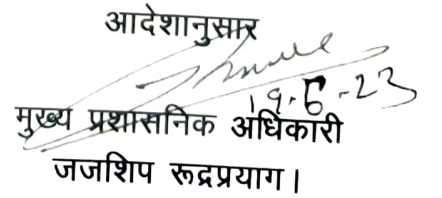 आदेशानुसार
19.6.-23
मुख्य प्रशासनिक अधिकारी
जजशिप रूद्रप्रयाग।